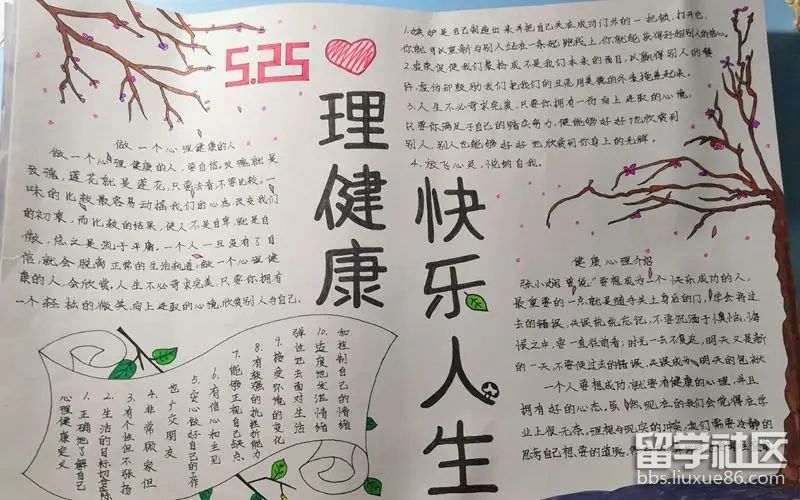 5.25
理健康
快乐人生
做一个心理健康的人
做一个心理健康的人，要自信。玫瑰就是
玫瑰，莲花就是莲花，只要去看不要比较。一
味的比较最容易动摇我们的心态改变我们
的初衷，而比较的结果，使人不是自卑，就是自
傲，总之是流于平庸。一个人一旦没有了自
信，就会脱离正常的生活轨道，做一个心理健
康的人，会欣赏，人生不必苛求完美，只要你拥有
一个轻松的微笑，向上进取的心境，欣赏别人与自己。
1.嫉妒是自己制造出来并把自己关在成功门外的一把锁，打开它，
你就可以重新与别人站在一条起跑线上，你就能获得赶超别人的信心。
2.虚荣促使我们装扮成不是我们本来的面目，以赢得别人的赞
许，虚伪却鼓励我们把我们的丑恶用美德的外表掩盖起来。
3.人生不必苛求完美，只要你拥有一份向上进取的心境，
只要你满足于自己的踏实努力，便能够好好地欣赏到
别人，别人也能够好好地欣赏到你身上的光辉。
4.放飞心灵，悦纳自我。
健康心理介绍
张小娴曾说："要想成为一个快乐成功的人，
最重要的一点就是随手关上身后的门，学会将过
去的错误、失误统统忘记，不要沉湎于懊恼、悔
恨之中，要一直往前看；时光一去不复返，明天又是新
的一天，不要使过去的错误、失误成为明天的包袱
一个人要想成功，就要有健康的心理，并且
拥有好的心态，虽然，现在的我们会觉得在学
业上很无奈，理想与现实的冲突，我们需要冷静的
思考自己想要的道路，
心理健康定义
1.正确地了解自己
2.生活的目标切合实际
3.有个性但不张扬
4.非常顾家但
也广交朋友
5.安心做好自己的工作
6.有信心和主见
7.能够正视自己缺点
8.有较强的抗挫折能力
9.接受环境的变化
弹性地去面对生活
10.适度地发泄情绪
和控制自己的情绪
留学社区
bbs.liuxue86.com